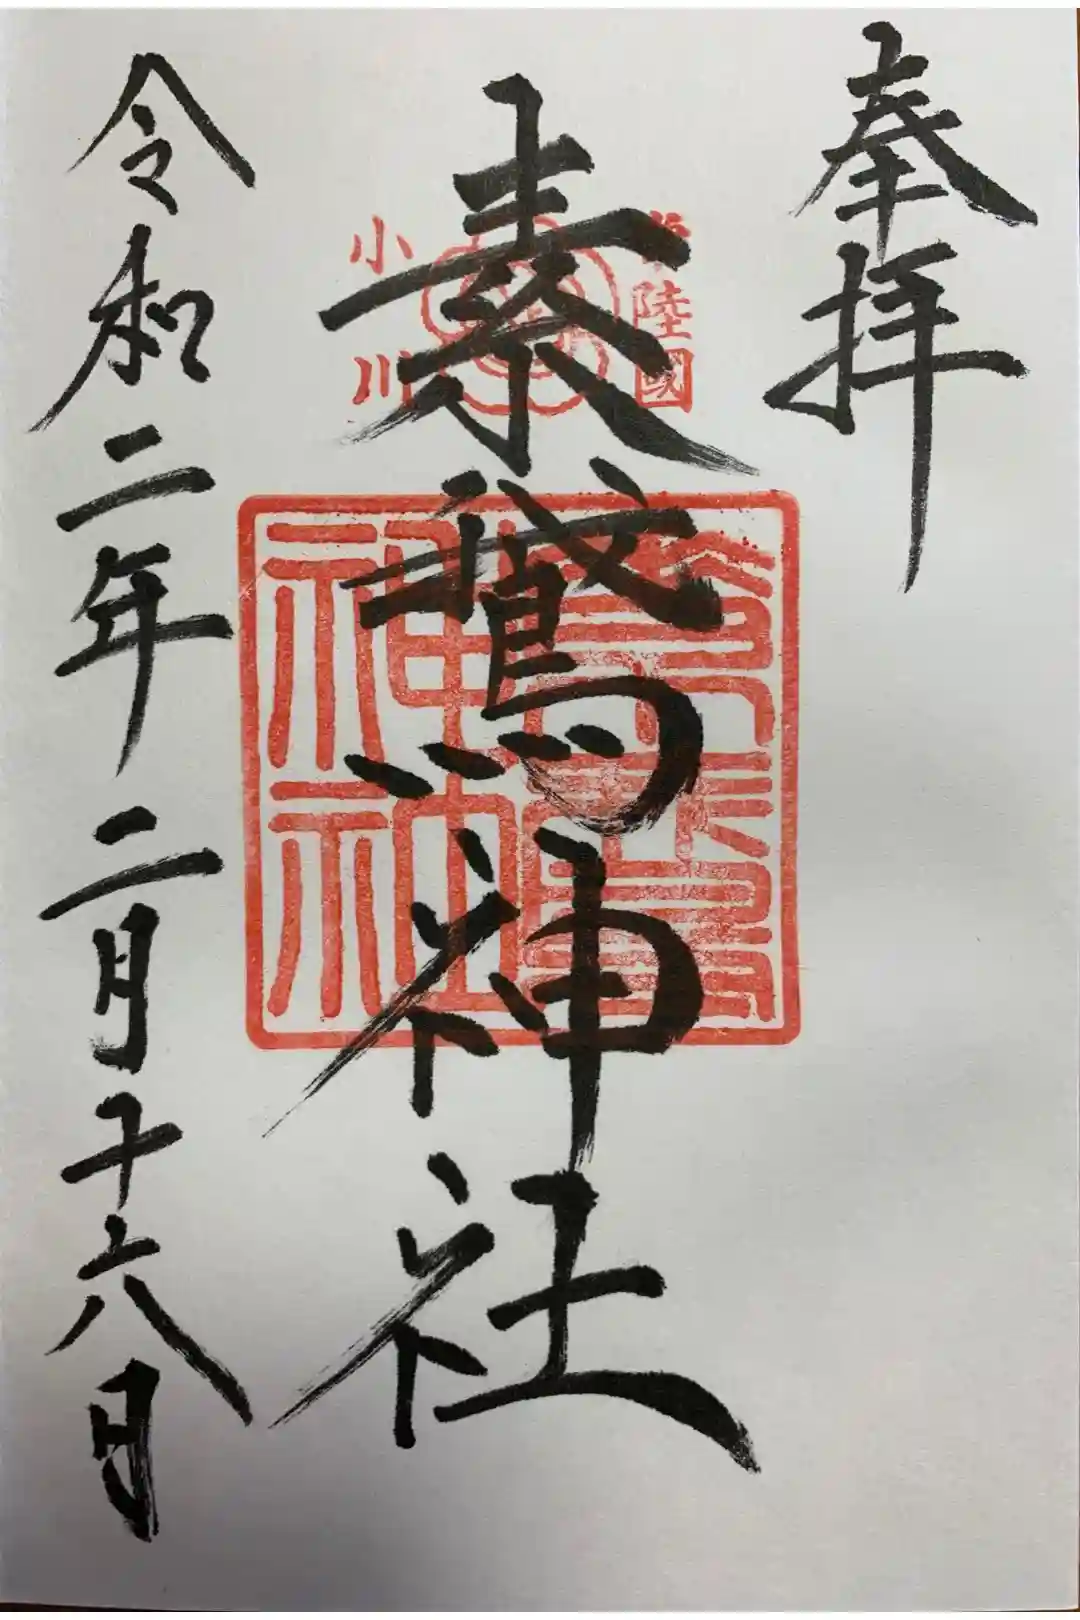 奉拝
常陸國
素鵞神社
小川
素鵞神社
令和二年二月十六日